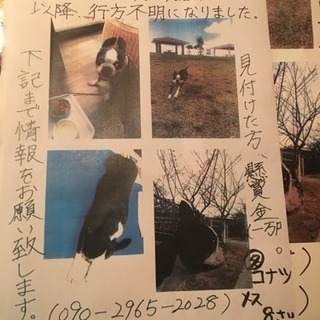 以降、行方不明になりました。
見付けた方、懸賞金(一万円)。
下記まで情報をお願い致します。
(090-2965-2028)
コナツ
メス
8才